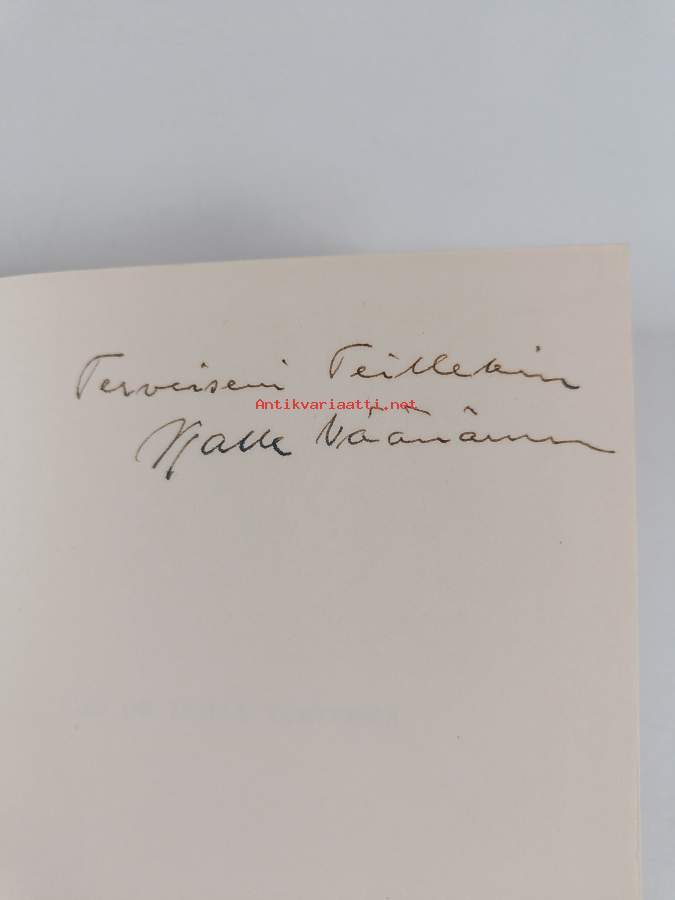 Terveiseni Teillekin
Antikvariaatti.net
Kalle Väänänen